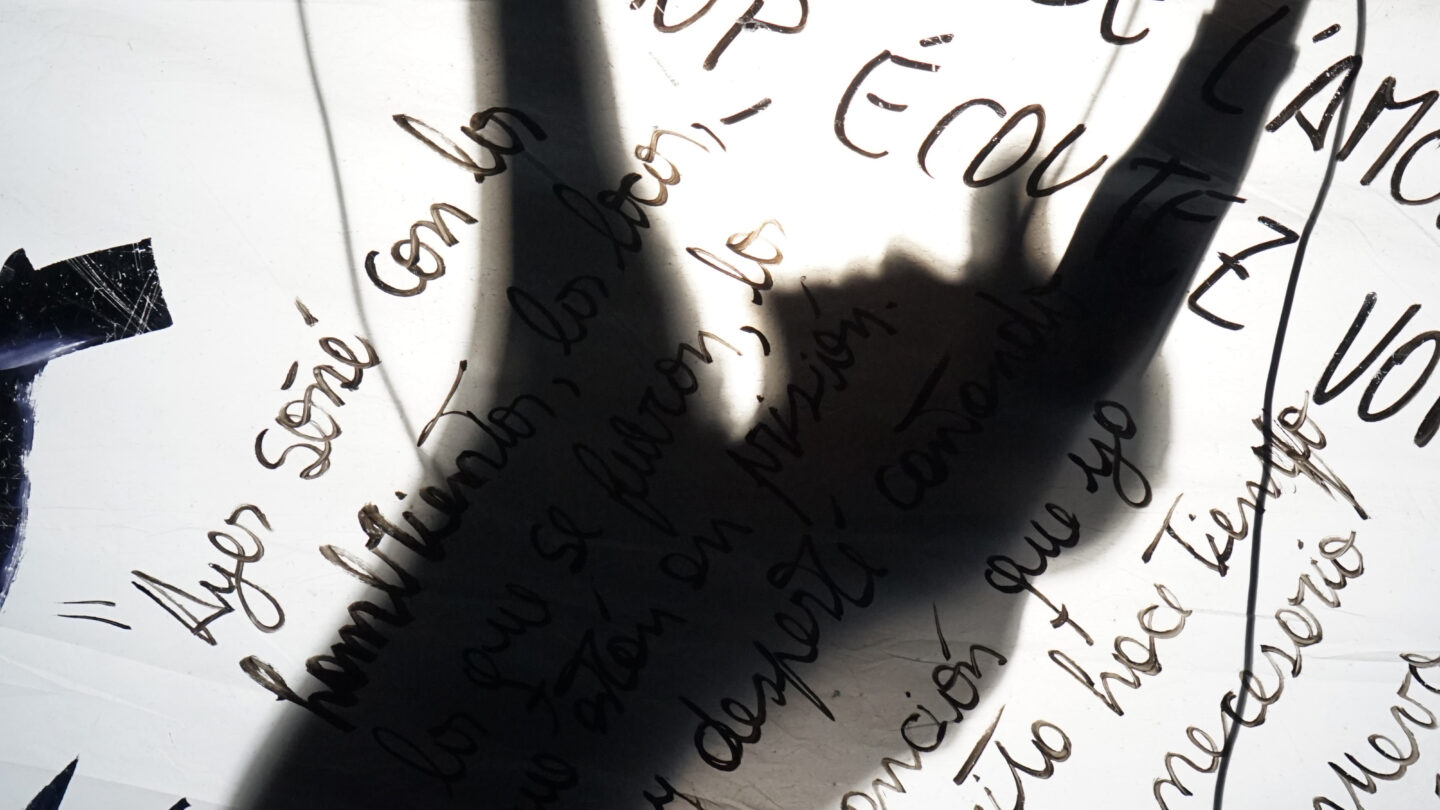 ÉCOUTEZ
L'AMO
VO
= Ayer soñé con los
hambrientos, los locos,
los que se fueron, los
ue están en prisión.
y desperté cantando
anción que ya
ito hace tiempo
necesario